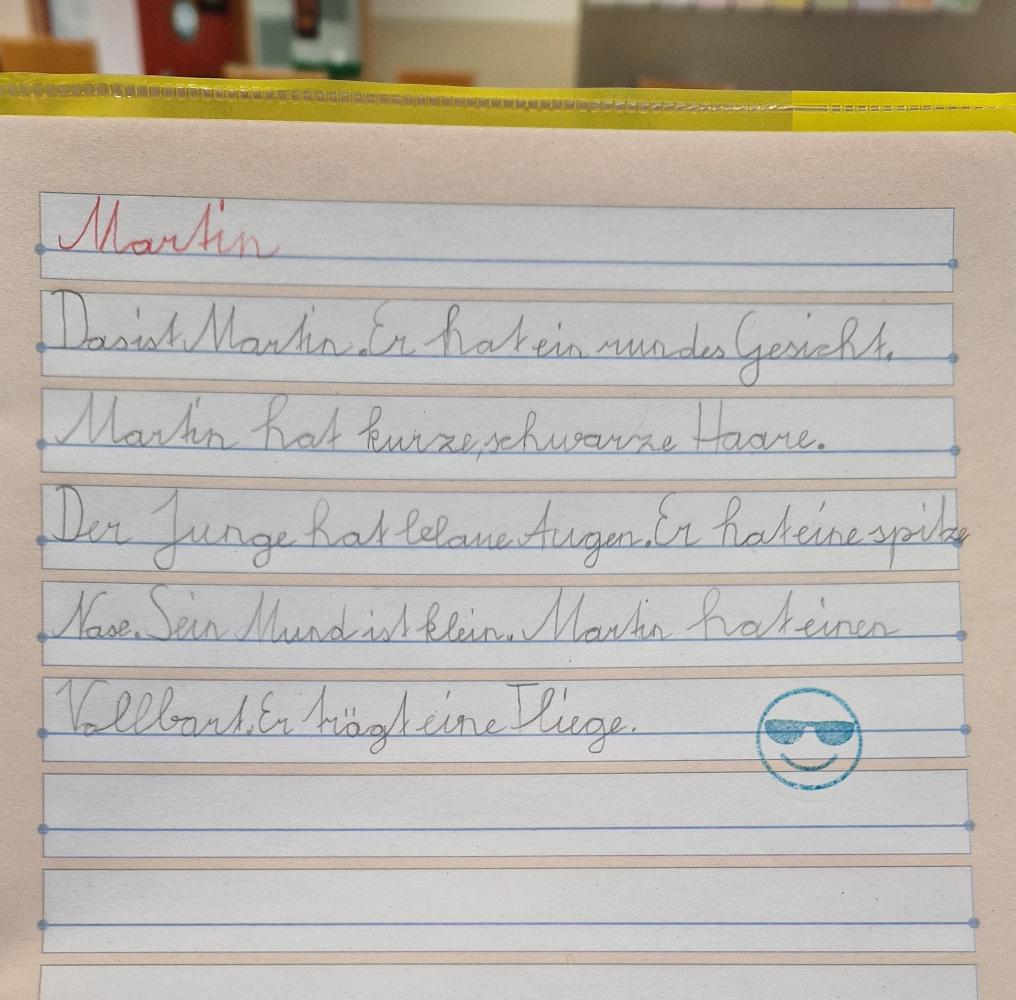 Martin
Das ist Martin. Er hat ein rundes Gesicht.
Martin hat kurze, schwarze Haare.
Der Junge hat blaue Augen. Er hat eine spitze
Nase. Sein Mund ist klein. Martin hat einen
Vollbart. Er trägt eine Fliege.